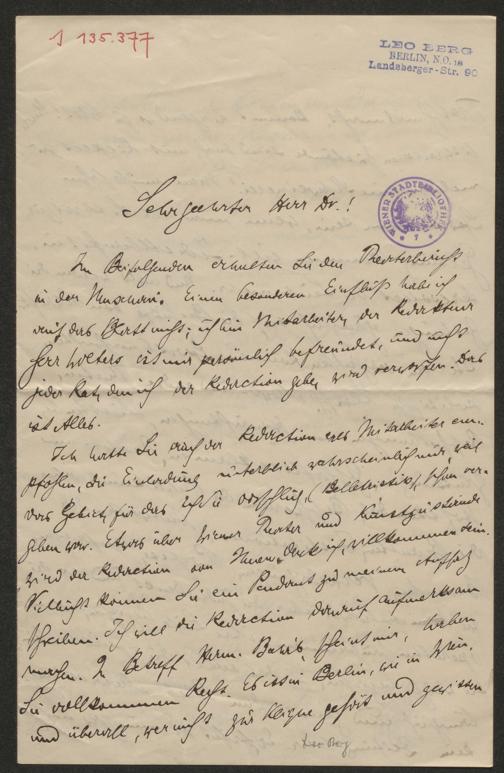 J 135.377
LEO BERG
BERLIN, N.O. 18
Landsberger-Str. 90
WIENER STADTBIBLIOTHEK
Sehr geehrter Herr Dr.!
Im Beifolgenden erhalten Sie den Theaterbericht
in der Einen besonderen Einfluß habe ich
auf das Blatt nicht; ich bin Mitarbeiter, der Redakteur
Herr Wolters ist mir persönlich befreundet, und nicht
jeder Rat, den ich der Redaction gebe, wird verworfen. Das
ist Alles.
Ich hatte Sie auch der Redaction als Mitarbeiter em-
pfohlen, die Einladung unterblieb wahrscheinlich nur, weil
das Gebiet, für das ich Sie vorschlug, (Belletristik), schon ver-
geben war. Etwas über Wiener Theater und Kunstzustände
wird der Redaction von Ihnen, denke ich, willkommen sein.
Vielleicht können Sie ein Pendant zu meinem Aufsatz
schreiben. Ich will die Redaction darauf aufmerksam
machen. In Betreff Herm. Bahr's, scheint mir, haben
Sie vollkommen Recht. Es ist in Berlin, wie in Wien,
und überall, wer nicht zur Klique gehört und gewissen
Leo Berg